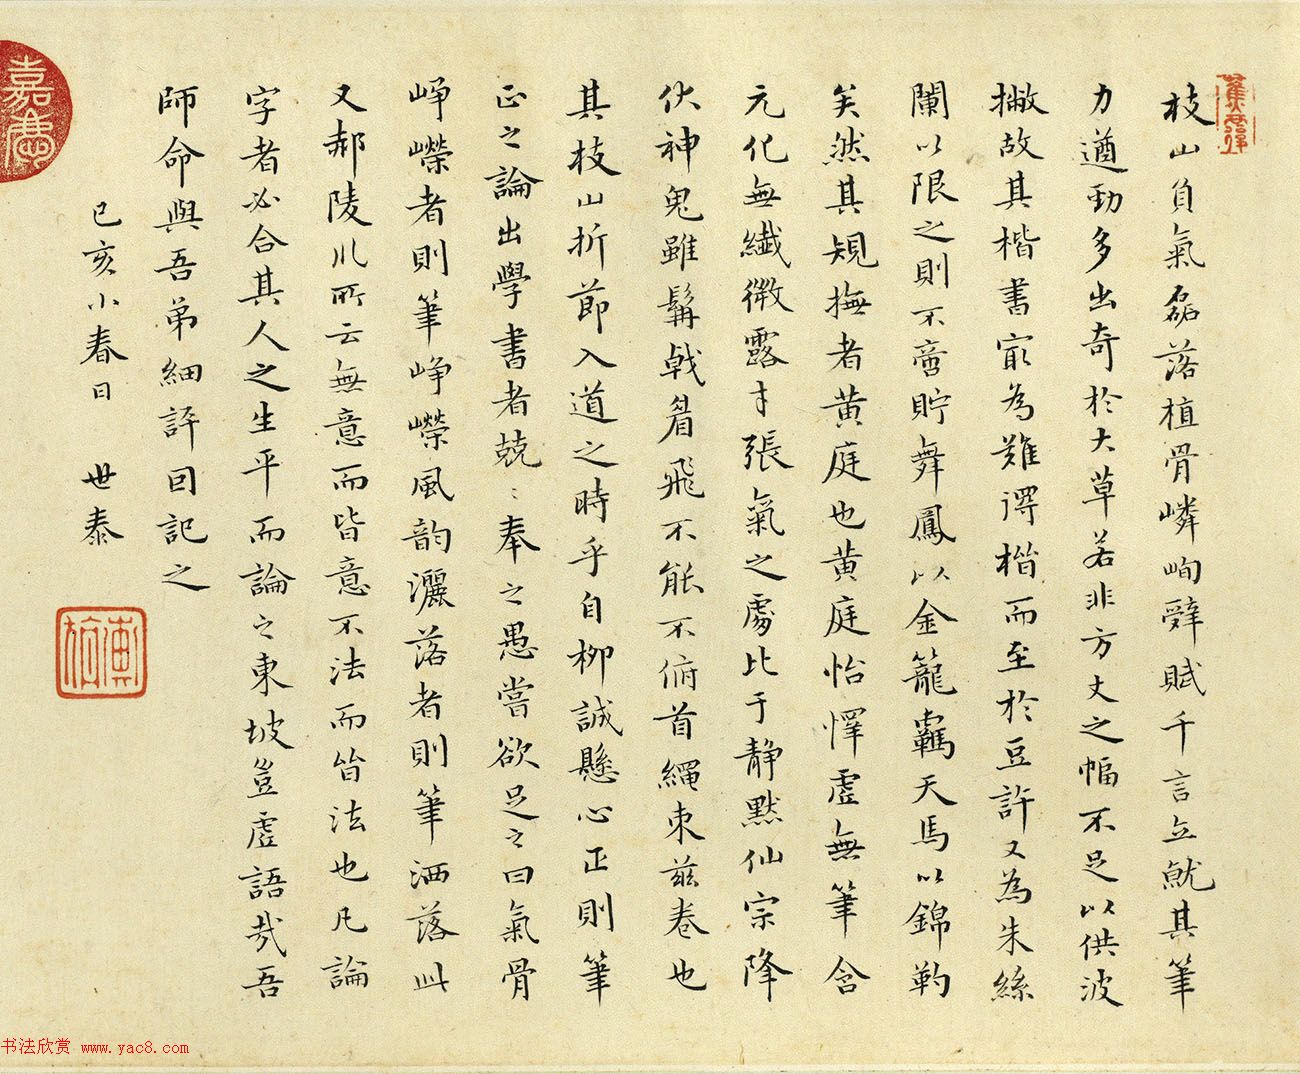 枝山負氣磊落植骨嶙峋辭賦千言立就其筆
力遒勁多出奇於大草若非方丈之幅不足以供波
撇故其楷書寂為難謂楷而至於豆許又為朱絲
闌以限之則不啻貯舞鳳以金籠羈天馬以錦勒
矣然其規撫者黃庭也黃庭怡懌虛無筆含
元化無纖微露才張氣之處比于靜默仙宗降
伏神鬼雖髯戟眉飛不能不俯首繩束茲卷也
其枝山折節入道之時乎自柳誠懸心正則筆
正之論出學書者兢〻奉之愚嘗欲足之曰氣骨
崢嶸者則筆崢嶸風韵灑落者則筆洒落此
又郝陵川所云無意而皆意不法而皆法也凡論
字者必合其人之生平而論之東坡豈虛語哉吾
師命與吾弟細評因記之
己亥小春日 世泰
嘉慶
書法欣赏 www.yac8.com